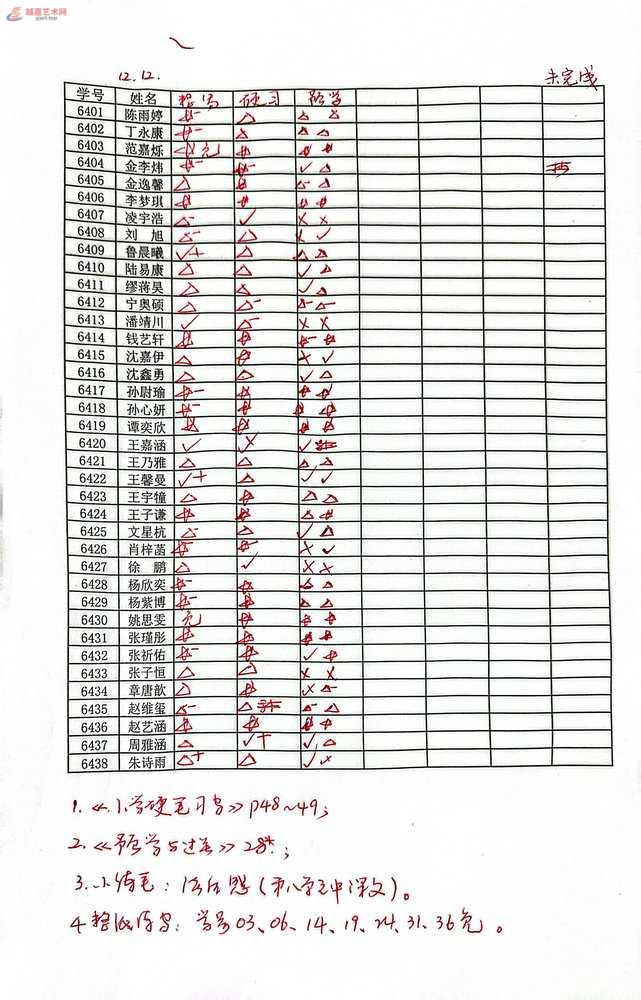 越嘉艺术网
yjart.top
12.12. 未完成
学号 姓名 默写 硬习 预学
6401 陈雨婷
6402 丁永康
6403 范嘉烁
6404 金李炜
6405 金逸馨
6406 李梦琪
6407 凌宇浩
6408 刘 旭
6409 鲁晨曦
6410 陆易康
6411 缪蒋昊
6412 宁奥硕
6413 潘靖川
6414 钱艺轩
6415 沈嘉伊
6416 沈鑫勇
6417 孙尉瑜
6418 孙心妍
6419 谭奕欣
6420 王嘉涵
6421 王乃雅
6422 王馨曼
6423 王宇犝
6424 王子谦
6425 文星杭
6426 肖梓菡
6427 徐 鹏
6428 杨欣奕
6429 杨紫博
6430 姚思雯 免
6431 张瑾彤
6432 张祈佑
6433 张子恒
6434 章唐歆
6435 赵维玺
6436 赵艺涵
6437 周雅涵
6438 朱诗雨
1.《小学硬笔习字》P48~49;
2.《预学与过关》28*;
3.小练笔:(第八单元中课文)。
4.默写:学号03、06、14、19、24、31、36免。